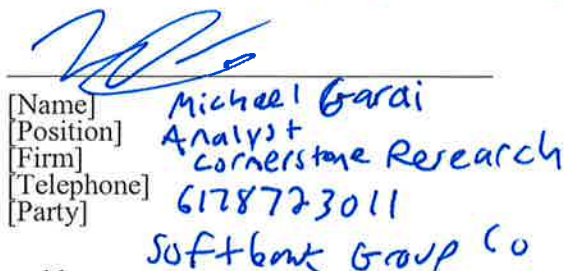 [Name] Michael Garai
[Position] Analyst
[Firm] Cornerstone Research
[Telephone] 6178723011
[Party] Softbank Group Co